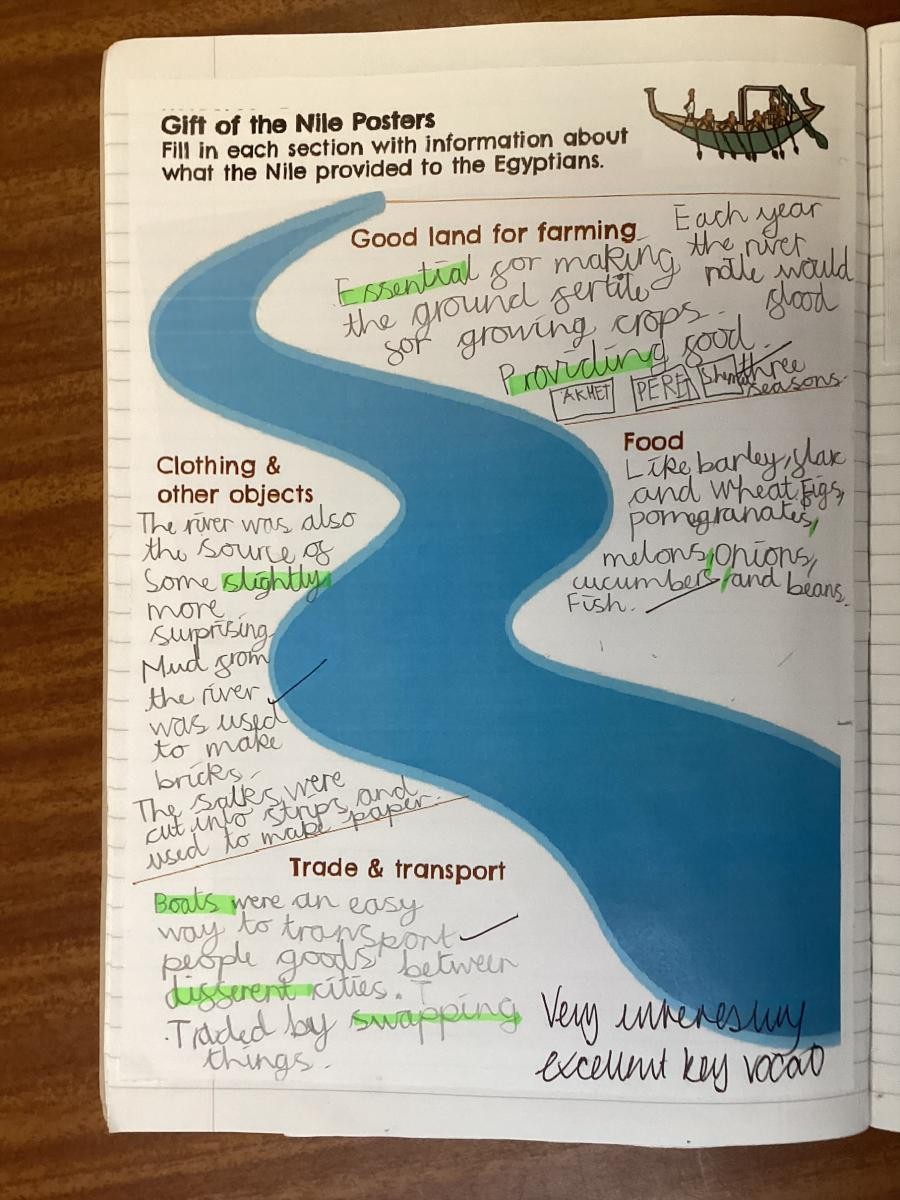 Gift of the Nile Posters
Fill in each section with information about
what the Nile provided to the Egyptians.
Good land for farming
Essential for making
the ground fertile
for growing crops.
Providing food.
Each year
the river
nile would
flood
AKHET PERET Shemu three
seasons.
Food
Like barley, flax
and wheat, Figs,
pomegranates,
melons, Onions,
cucumbers, and beans.
Fish.
Clothing &
other objects
The river was also
the source of
Some slightly
more
surprising
Mud from
the river
was used
to make
bricks.
The salks were
cut into strips and
used to make paper.
Trade & transport
Boats were an easy
way to transport
people goods between
different cities.
Traded by swapping
things.
Very interesting
excellent key vocab